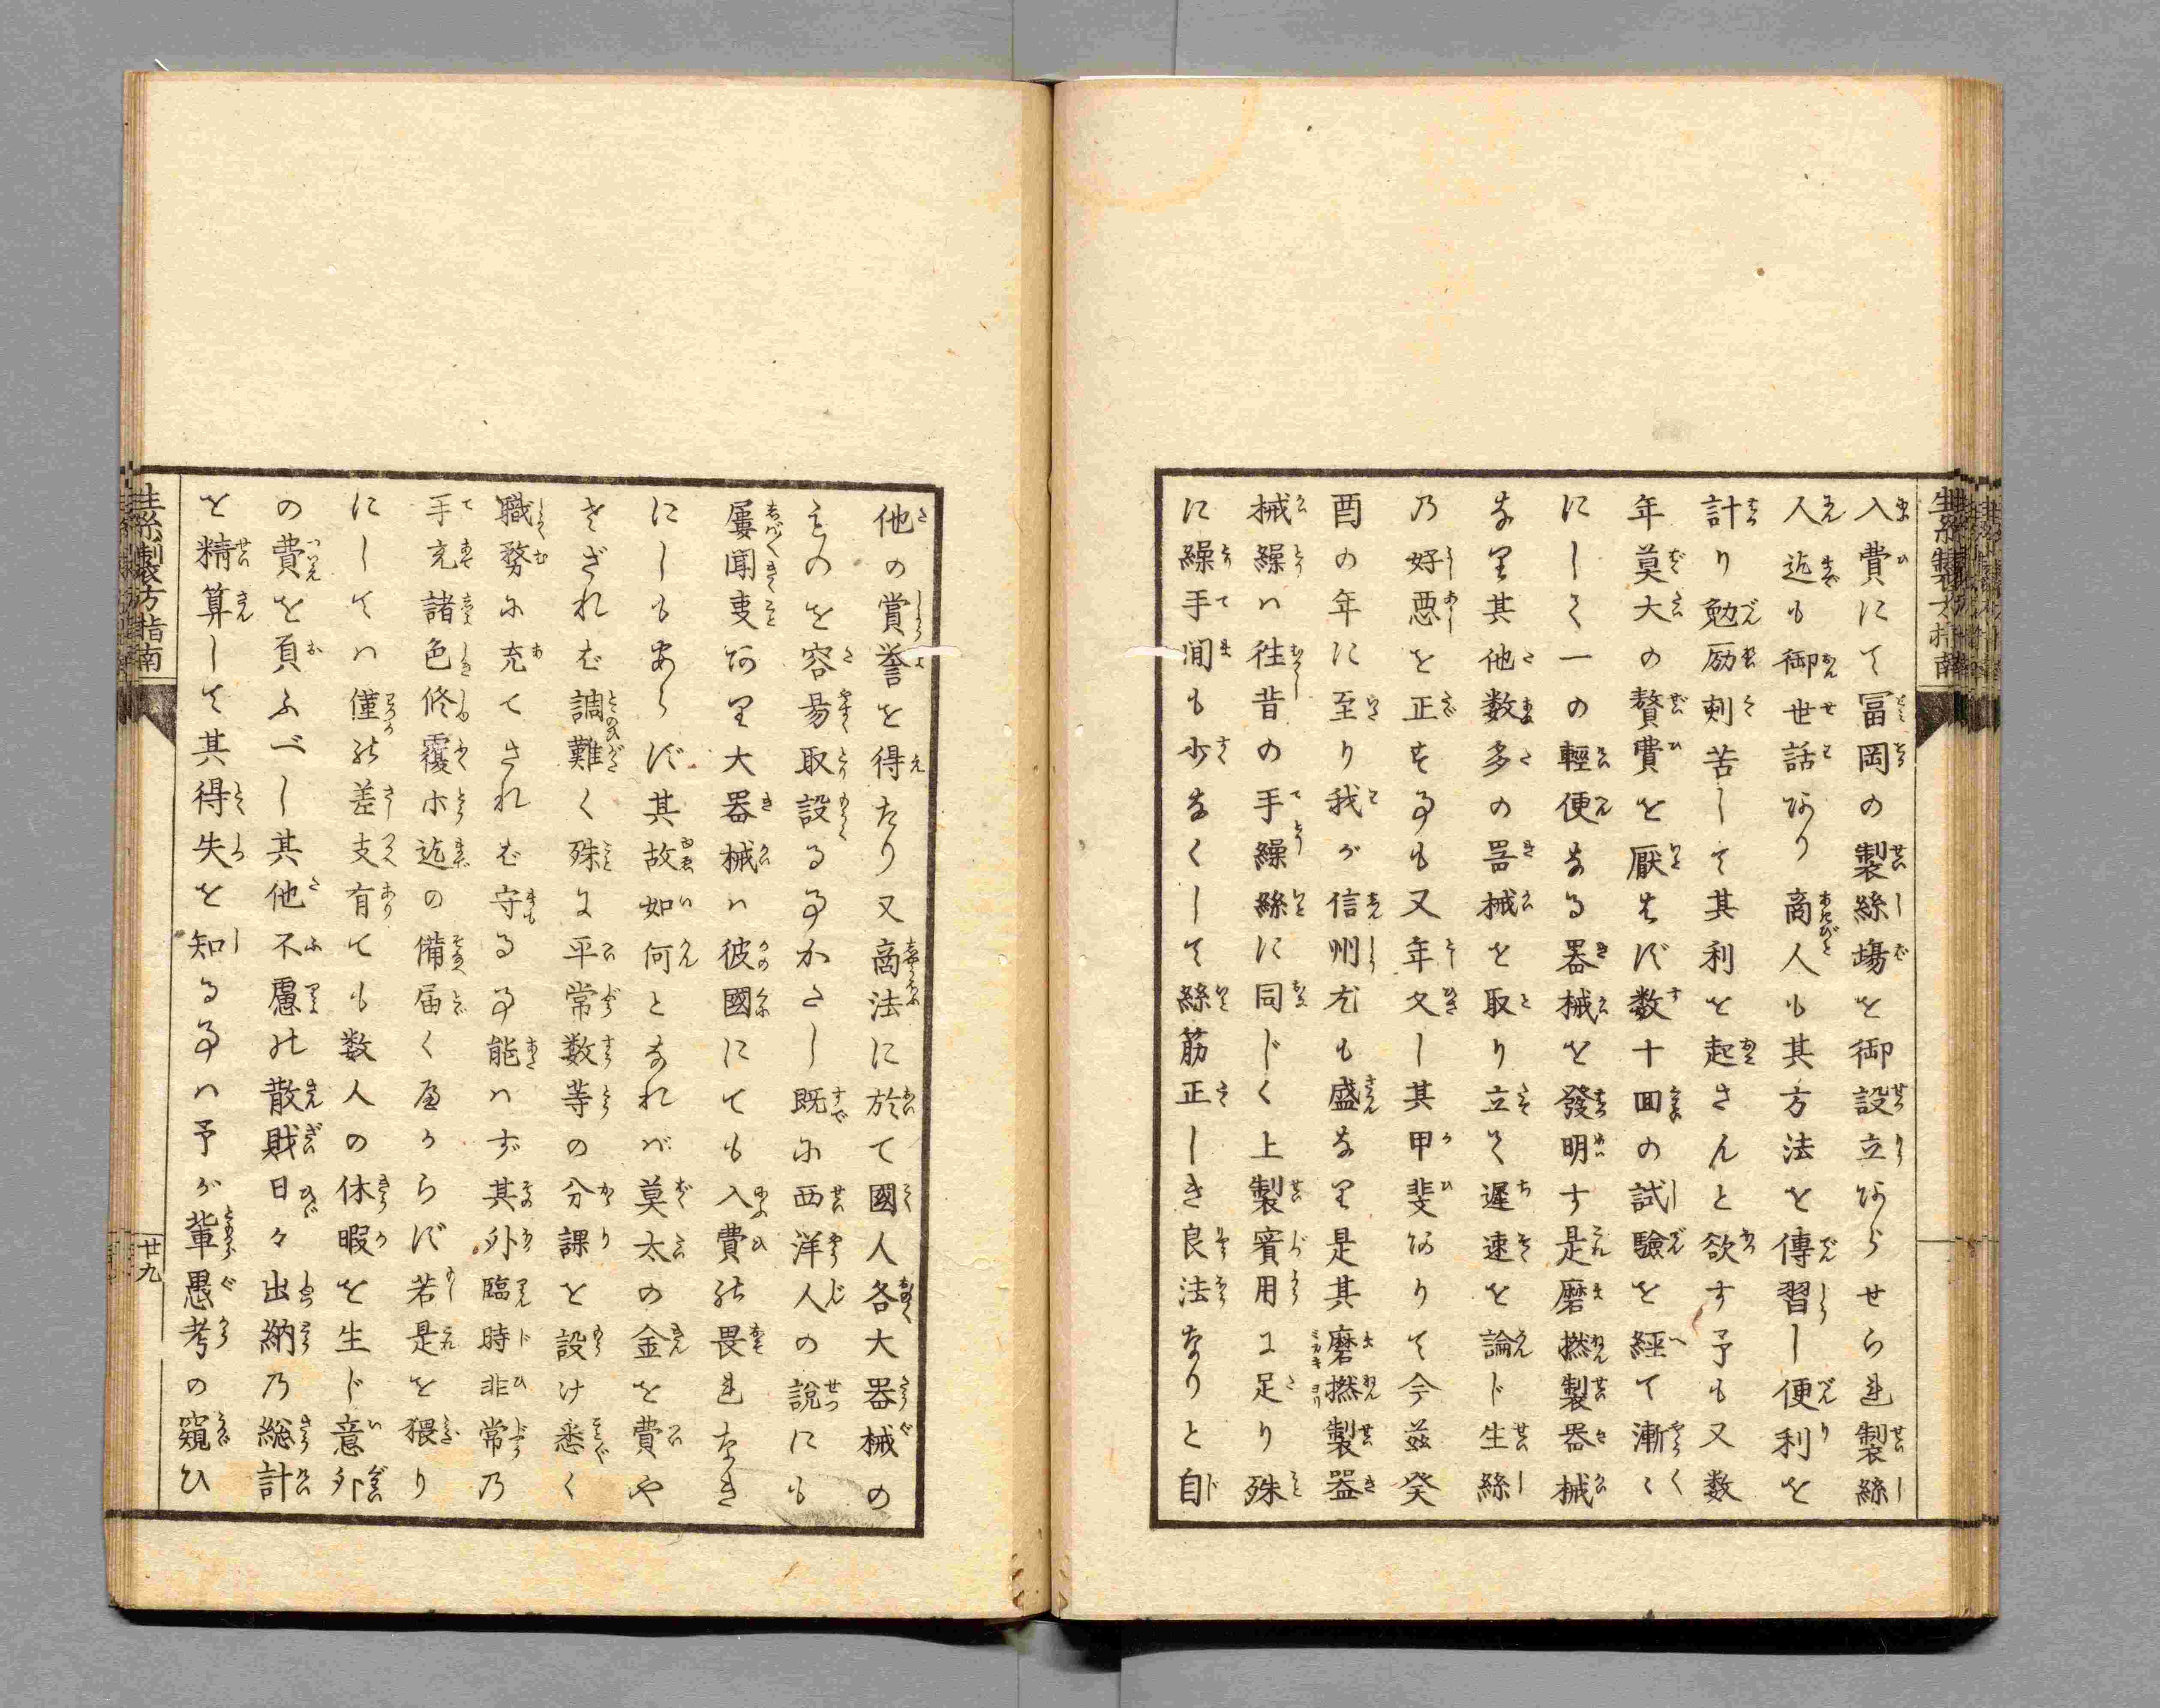 生糸製方指南
入費にて冨岡の製絲塲を御設立あらせられ製絲
人迄も御世話あり商人も其方法を傳習し便利を
計り勉励剋苦して其利を起さんと欲す予も又数
年莫大の贅費を厭はず数十回の試驗を經て漸〻
にして一の輕便なる器械を發明す是磨撚製器械
なり其他数多の噐械を取り立て遲速を論ド生絲
乃好悪を正す事も又年久し其甲斐ありて今茲癸
酉の年に至り我が信州尤も盛なり是其磨撚製器
械繰ハ徃昔の手繰絲に同じく上製賔用に足り殊
に繰手間も少なくして絲筋正しき良法なりと自
他の賞誉を得たり又商法に於て國人各大器械の
ものを容昜取設る事かたし既に西洋人の說にも
屢聞事あり大器械ハ彼國にても入費の畏れなき
にしもあらず其故如何となれバ莫太の金を費や
さざれば調難く殊に平常数等の分課を設け悉く
職務に充てされば守る事能ハず其外臨時非常乃
手充諸色修覆ホ迄の備届く届からず若是を猥り
にしてハ僅の差支有ても数人の休暇を生ド意外
の費を負ふべし其他不慮の散財日々出納乃総計
を精算して其得失を知る事ハ予が軰愚考の窺ひ
生糸製方指南
廿九